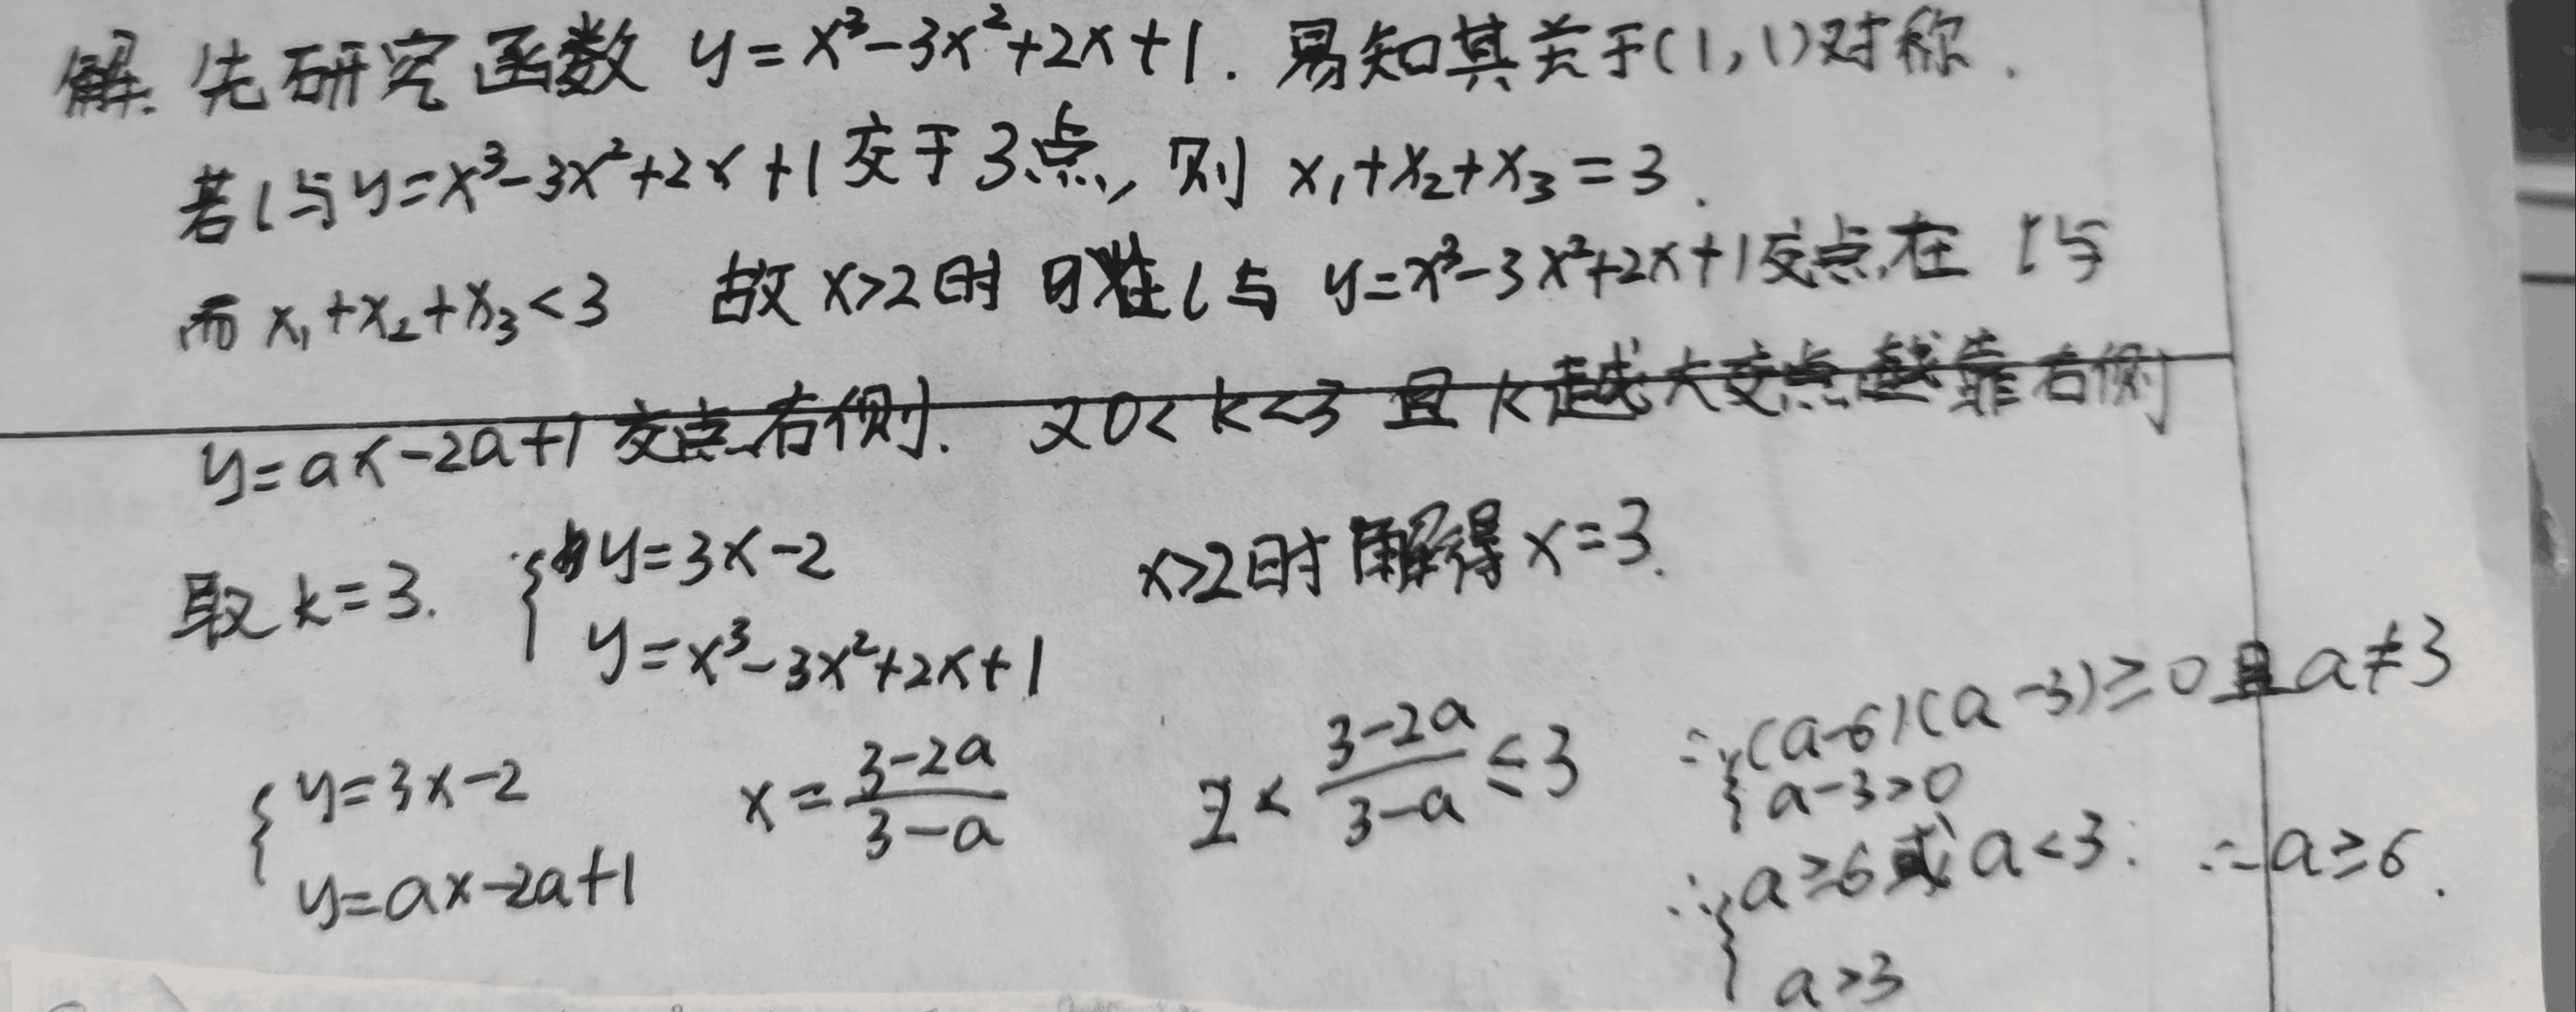 解. 先研究函数 y=x³-3x²+2x+1. 易知其关于(1,1)对称.
若l与y=x³-3x²+2x+1交于3点, 则 x₁+x₂+x₃=3.
而x₁+x₂+x₃<3 故x>2时 l与 y=x³-3x²+2x+1交点在 l与
y=ax-2a+1交点右侧. 又0<k<3 且k越大交点越靠右侧
取k=3. { y=3x-2 x>2时解得x=3.
y=x³-3x²+2x+1
{ y=3x-2 x=(3-2a)/(3-a) 2<(3-2a)/(3-a)≤3 ∴{(a-6)(a-3)≥0且a≠3
a-3>0
y=ax-2a+1 ∴{a≥6或a<3. ∴a≥6.
a>3